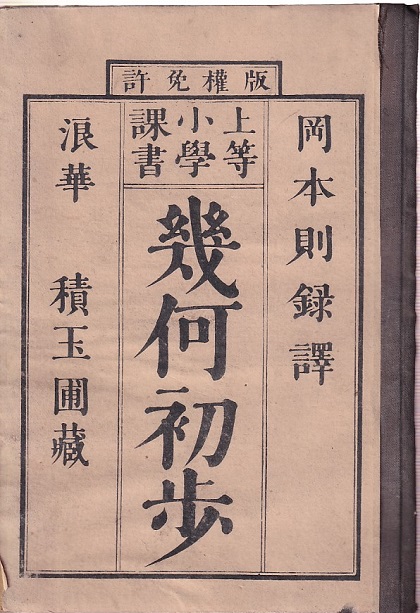 版權免許
岡本則録譯
上等
小學
課書
幾何初歩
浪華 積玉圃藏